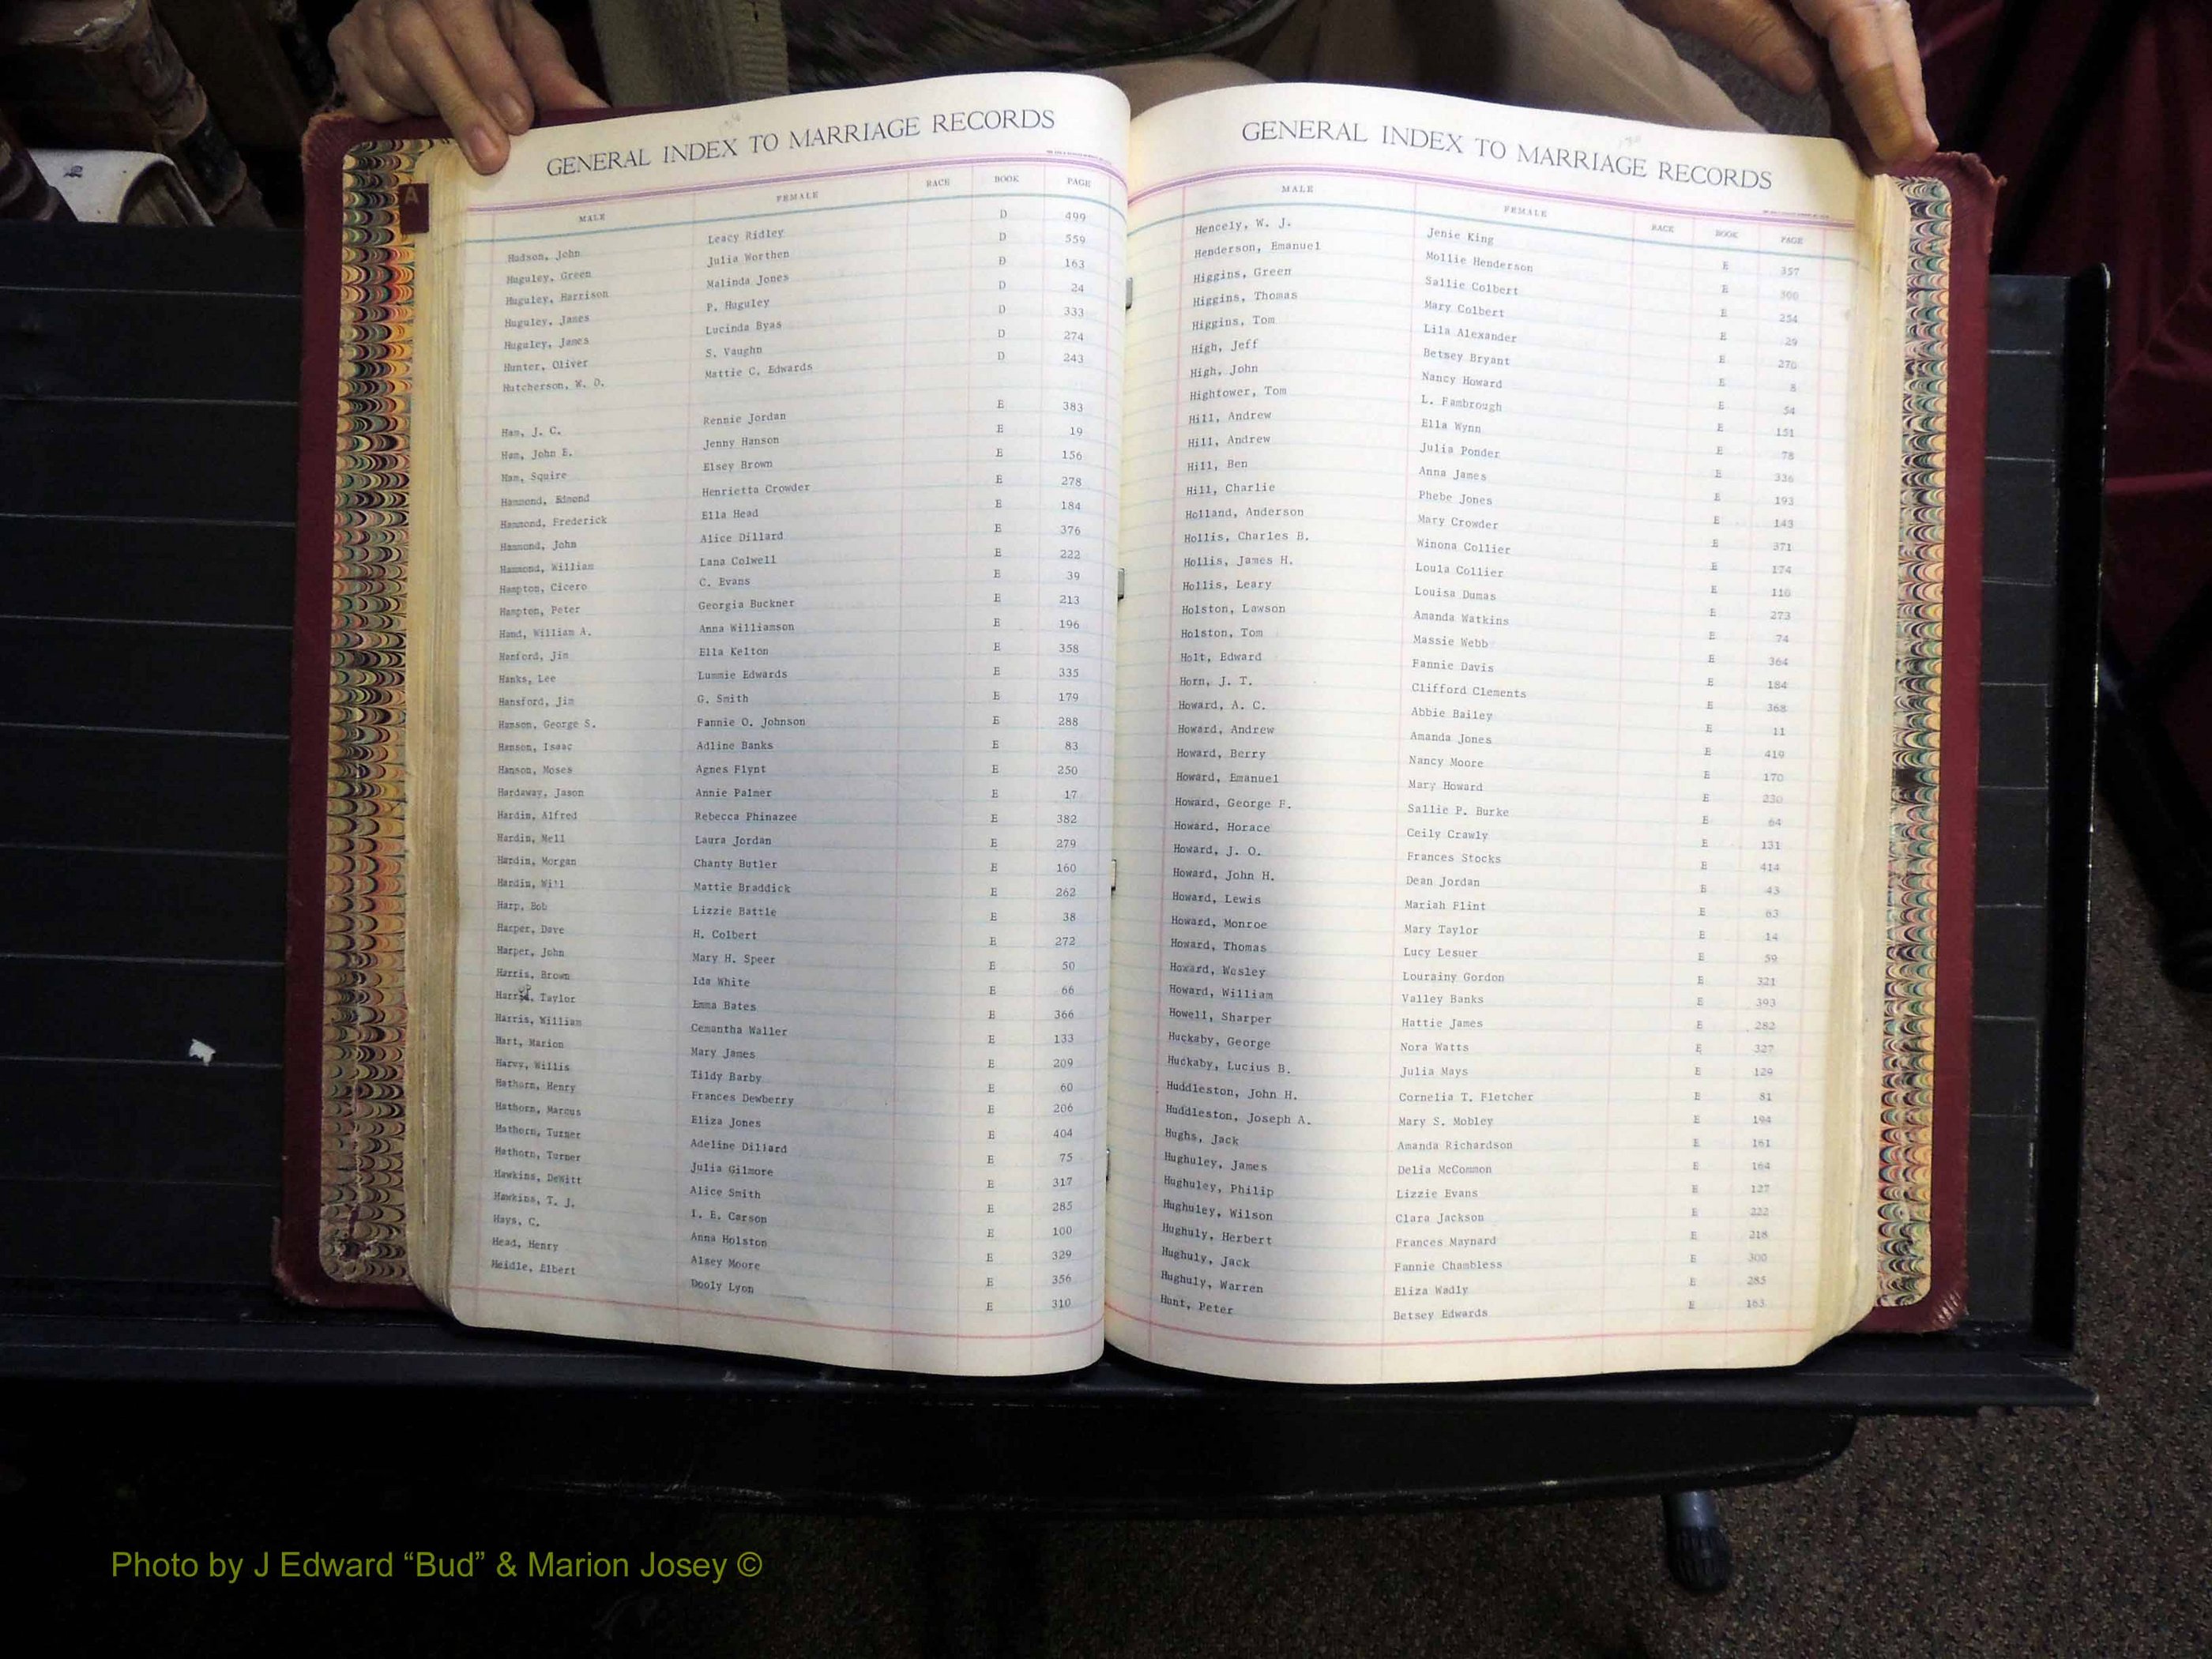 GENERAL INDEX TO MARRIAGE RECORDS
MALE FEMALE RACE BOOK PAGE
Hudson, John Leacy Ridley D 499
Huguley, Green Julia Worthen D 559
Huguley, Harrison Malinda Jones D 163
Huguley, James P. Huguley D 24
Huguley, James Lucinda Byas D 333
Hunter, Oliver S. Vaughn D 274
Hutcherson, W. D. Mattie C. Edwards D 243
Ham, J. C. Rennie Jordan E 383
Ham, John E. Jenny Hanson E 19
Ham, Squire Elsey Brown E 156
Hammond, Edmond Henrietta Crowder E 278
Hammond, Frederick Ella Head E 184
Hammond, John Alice Dillard E 376
Hammond, William Lana Colwell E 222
Hampton, Cicero C. Evans E 39
Hampton, Peter Georgia Buckner E 213
Hand, William A. Anna Williamson E 196
Hanford, Jim Ella Kelton E 358
Hanks, Lee Lummie Edwards E 335
Hansford, Jim G. Smith E 179
Hanson, George S. Fannie O. Johnson E 288
Hanson, Isaac Adline Banks E 83
Hanson, Moses Agnes Flynt E 250
Hardaway, Jason Annie Palmer E 17
Hardin, Alfred Rebecca Phinazee E 382
Hardin, Mell Laura Jordan E 279
Hardin, Morgan Chanty Butler E 160
Hardin, Will Mattie Braddick E 262
Harp, Bob Lizzie Battle E 38
Harper, Dave H. Colbert E 272
Harper, John Mary H. Speer E 50
Harris, Brown Ida White E 66
Taylor Emma Bates E 366
Harris, William Cemantha Waller E 133
Hart, Marion Mary James E 209
Harvy, Willis Tildy Barby E 60
Hathorn, Henry Frances Dewberry E 206
Hathorn, Marcus Eliza Jones E 404
Hathorn, Turner Adeline Dillard E 75
Hathorn, Turner Julia Gilmore E 317
Hawkins, DeWitt Alice Smith E 285
Hawkins, T. J. I. E. Carson E 100
Hays, C. Anna Holston E 329
Head, Henry Alsey Moore E 356
Heidle, Elbert Dooly Lyon E 310
GENERAL INDEX TO MARRIAGE RECORDS
MALE FEMALE RACE BOOK PAGE
Hencely, W. J. Jenie King E 357
Henderson, Emanuel Mollie Henderson E 300
Higgins, Green Sallie Colbert E 254
Higgins, Thomas Mary Colbert E 29
Higgins, Tom Lila Alexander E 270
High, Jeff Betsey Bryant E 8
High, John Nancy Howard E 54
Hightower, Tom L. Fambrough E 151
Hill, Andrew Ella Wynn E 78
Hill, Andrew Julia Ponder E 336
Hill, Ben Anna James E 193
Hill, Charlie Phebe Jones E 143
Holland, Anderson Mary Crowder E 371
Hollis, Charles B. Winona Collier E 174
Hollis, James H. Loula Collier E 110
Hollis, Leary Louisa Dumas E 273
Holston, Lawson Amanda Watkins E 74
Holston, Tom Massie Webb E 364
Holt, Edward Fannie Davis E 184
Horn, J. T. Clifford Clements E 368
Howard, A. C. Abbie Bailey E 11
Howard, Andrew Amanda Jones E 419
Howard, Berry Nancy Moore E 170
Howard, Emanuel Mary Howard E 230
Howard, George F. Sallie P. Burke E 64
Howard, Horace Ceily Crawly E 131
Howard, J. O. Frances Stocks E 414
Howard, John H. Dean Jordan E 43
Howard, Lewis Mariah Flint E 63
Howard, Monroe Mary Taylor E 14
Howard, Thomas Lucy Lesuer E 59
Howard, Wesley Lourainy Gordon E 321
Howard, William Valley Banks E 393
Howell, Sharper Hattie James E 282
Huckaby, George Nora Watts E 327
Huckaby, Lucius B. Julia Mays E 129
Huddleston, John H. Cornelia T. Fletcher E 81
Huddleston, Joseph A. Mary S. Mobley E 194
Hughs, Jack Amanda Richardson E 161
Hughuley, James Delia McCommon E 164
Hughuley, Philip Lizzie Evans E 127
Hughuley, Wilson Clara Jackson E 222
Hughuly, Herbert Frances Maynard E 218
Hughuly, Jack Fannie Chambless E 300
Hughuly, Warren Eliza Wadly E 285
Hunt, Peter Betsey Edwards E 163
A
Photo by J Edward “Bud” & Marion Josey ©